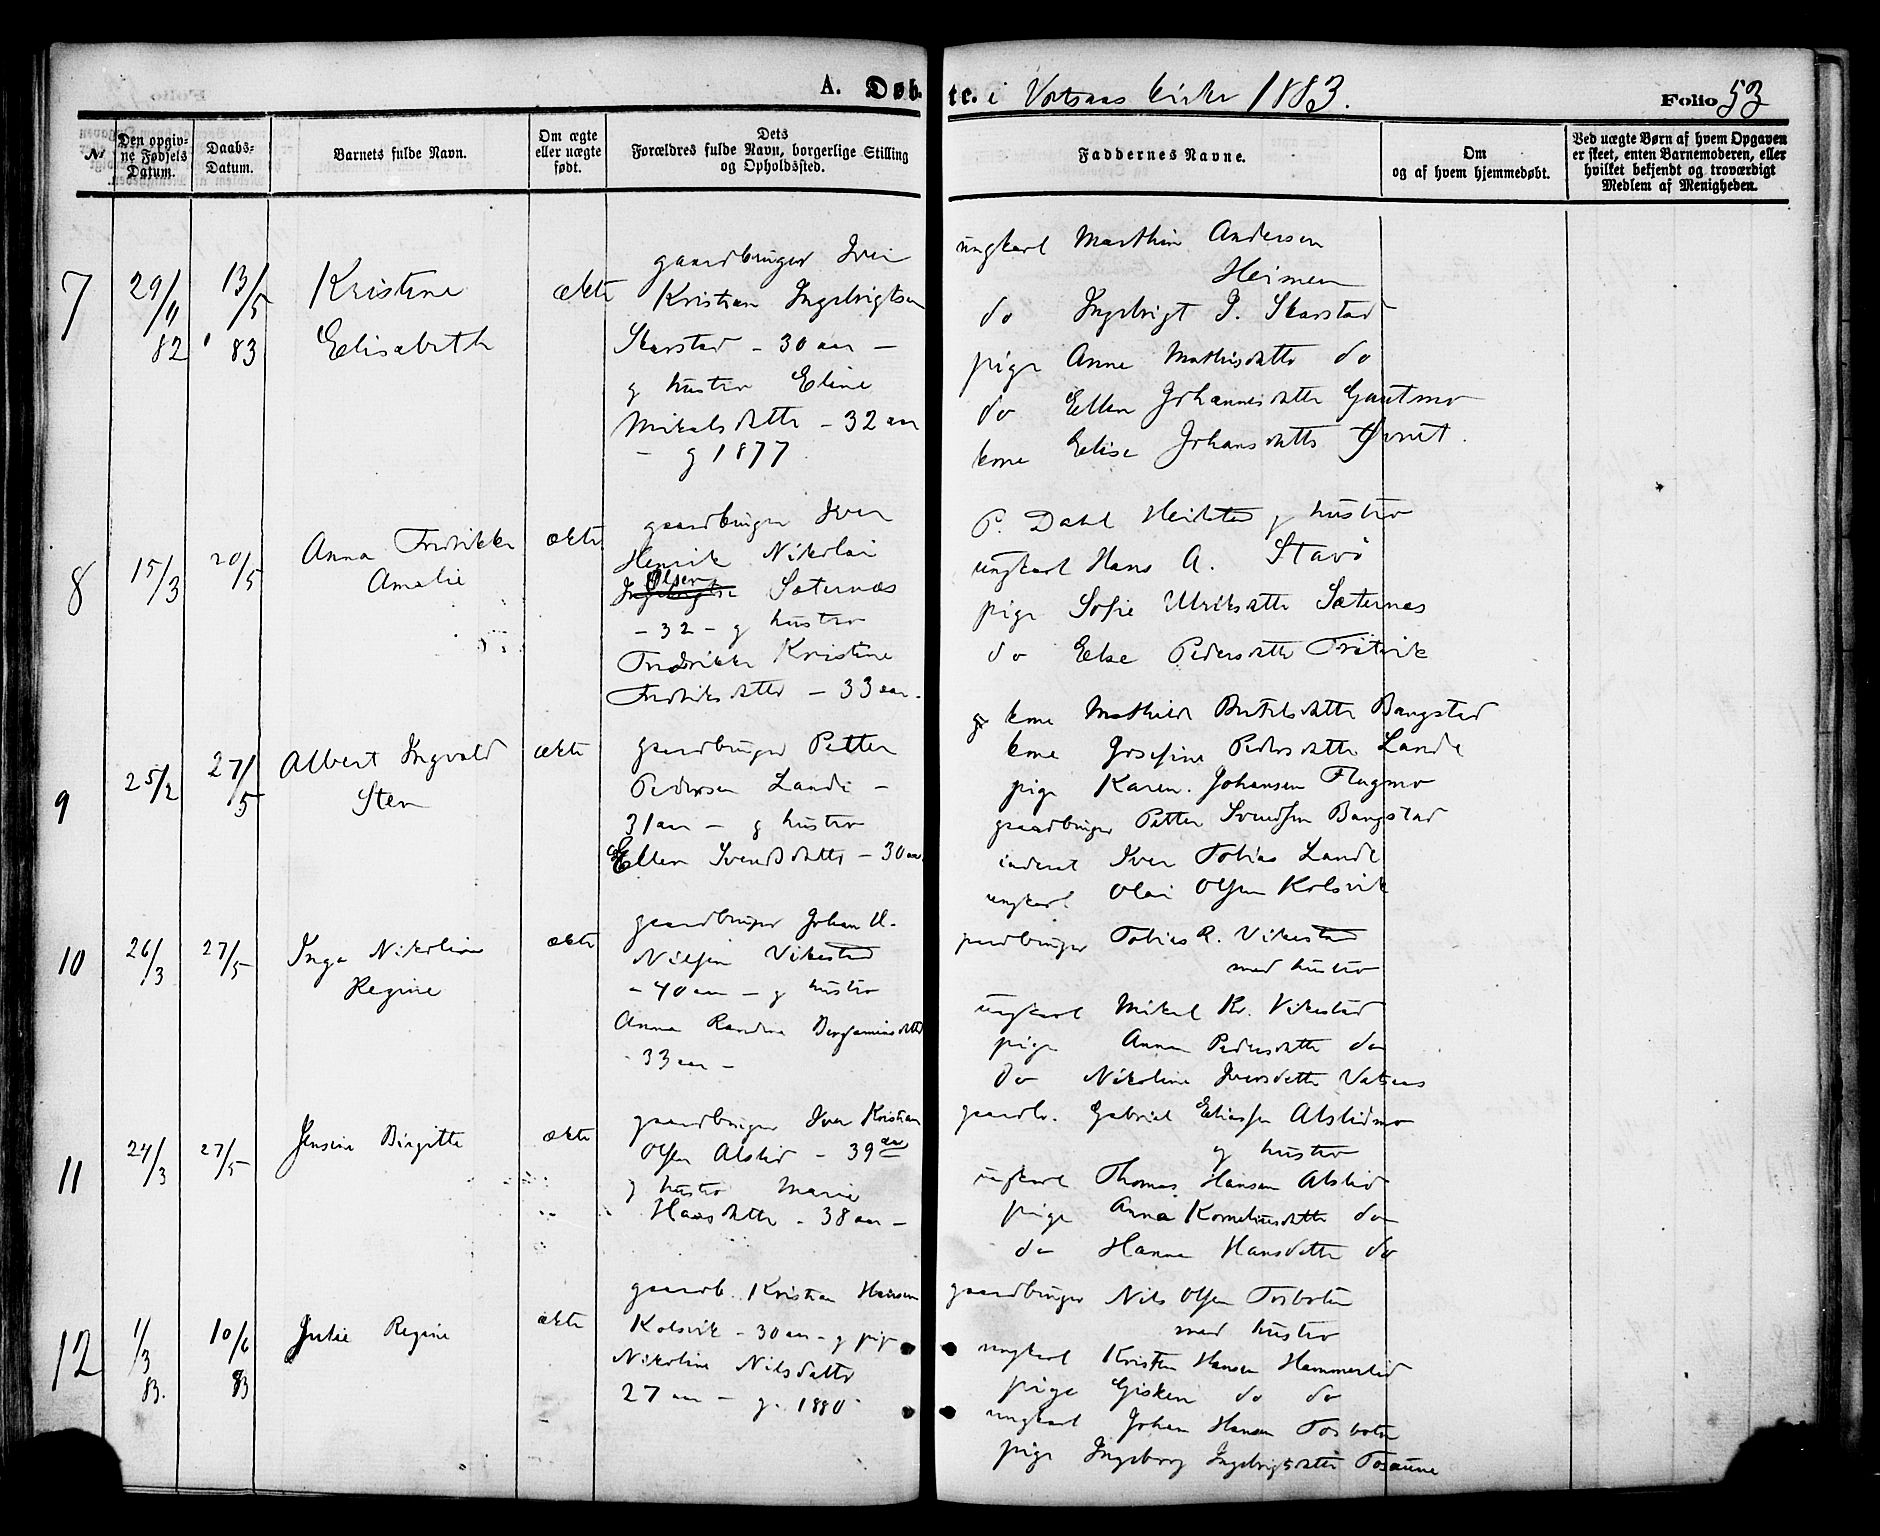 A. Døb-
te. i Votsaas kirke 1883.
Folio 53
№
Den opgiv-
ne Fødsels
Datum.
Daabs-
Datum.
Barnets fulde Navn.
Om ægte
eller uægte
født.
Dets
Forældres fulde Navn, borgerlige Stilling
og Opholdssted.
Faddernes Navne.
Om
og af hvem hjemmedøbt.
Ved uægte Børn af hvem Opgaven
er skeet, enten Barnemoderen, eller
hvilket bekjendt og troværdigt
Medlem af Menigheden.
7
29/11
82
13/5
83
Kristine
Elisabeth
ækte
gaardbruger Iver
Kristian Ingebrigtsen
Skarstad - 30 aar -
g hustro Eline
Mikalsdatter - 32 aar
- g 1877
ungkarl Marthin Andersen
Heimen
do Ingebrigt I. Skarstad
pige Anne Mathisdatter do
do Ellen Johannesdatter Gautmo
kone Elise Johansdatter Øvret.
8
15/3
20/5
Anna Fredrikke
Amalie
ækte
gaardbruger Iver
Henrik Nikolai
Olsen
Ingebrigtsen Sæternæs
- 32 - g hustro
Fredrikke Kristine
Fredriksdatter - 33 aar.
P. Dahl Heilstad g hustro
ungkarl Hans A. Stavø
pige Sofie Ulriksdatter Sæternæs
do Else Pedersdatter Trætvik
9
25/2
27/5
Albert Ingvald
Sten
ækte
gaardbruger Petter
Pedersen Lande -
31 aar - g hustro
Ellen Svendsdatter - 30 aar.
g kone Mathilde Bertelsdatter Bangstad
kone Josefine Pedersdatter Lande
pige Karen Johansen Flugmo
gaardbruger Petter Svendsen Bangstad
inderst Iver Tobias Lande
ungkarl Olai Olsen Kolsvik
10
26/3
27/5
Inga Nikoline
Regine
ækte
gaardbruger Johan U.
Nilsen Vikestad
- 40 aar - g hustro
Anna Randine Benjaminsdatter
- 33 aar -
gaardbruger Tobias R. Vikestad
med hustro
ungkarl Mikal Kr. Vikestad
pige Anna Pedersdatter do
do Nikoline Iversdatter Vatsaas
11
24/3
27/5
Jensine Birgitte
ækte
gaardbruger Iver Kristian
Olsen Alstid - 39 aar
g hustro Marie
Hansdatter - 38 aar -
gaardb. Gabriel Eliassen Alstidmo
g hustro
ungkarl Thomas Hansen Alstid
pige Anna Korneliusdatter do
do Hanna Hansdatter do
12
1/3
83.
10/6
83
Julie Regine
ækte
gaardb. Kristian Hansen
Kolsvik - 30 aar - g pige
Nikoline Nilsdatter
27 aar - g. 1880
gaardbruger Nils Olsen Tosbotn
med hustro
ungkarl Kristen Hansen Hammerlid
pige Gisken do do
ungkarl Johan Hansen Tosbotn
pige Ingeborg Ingebrigtsdatter Tosaune